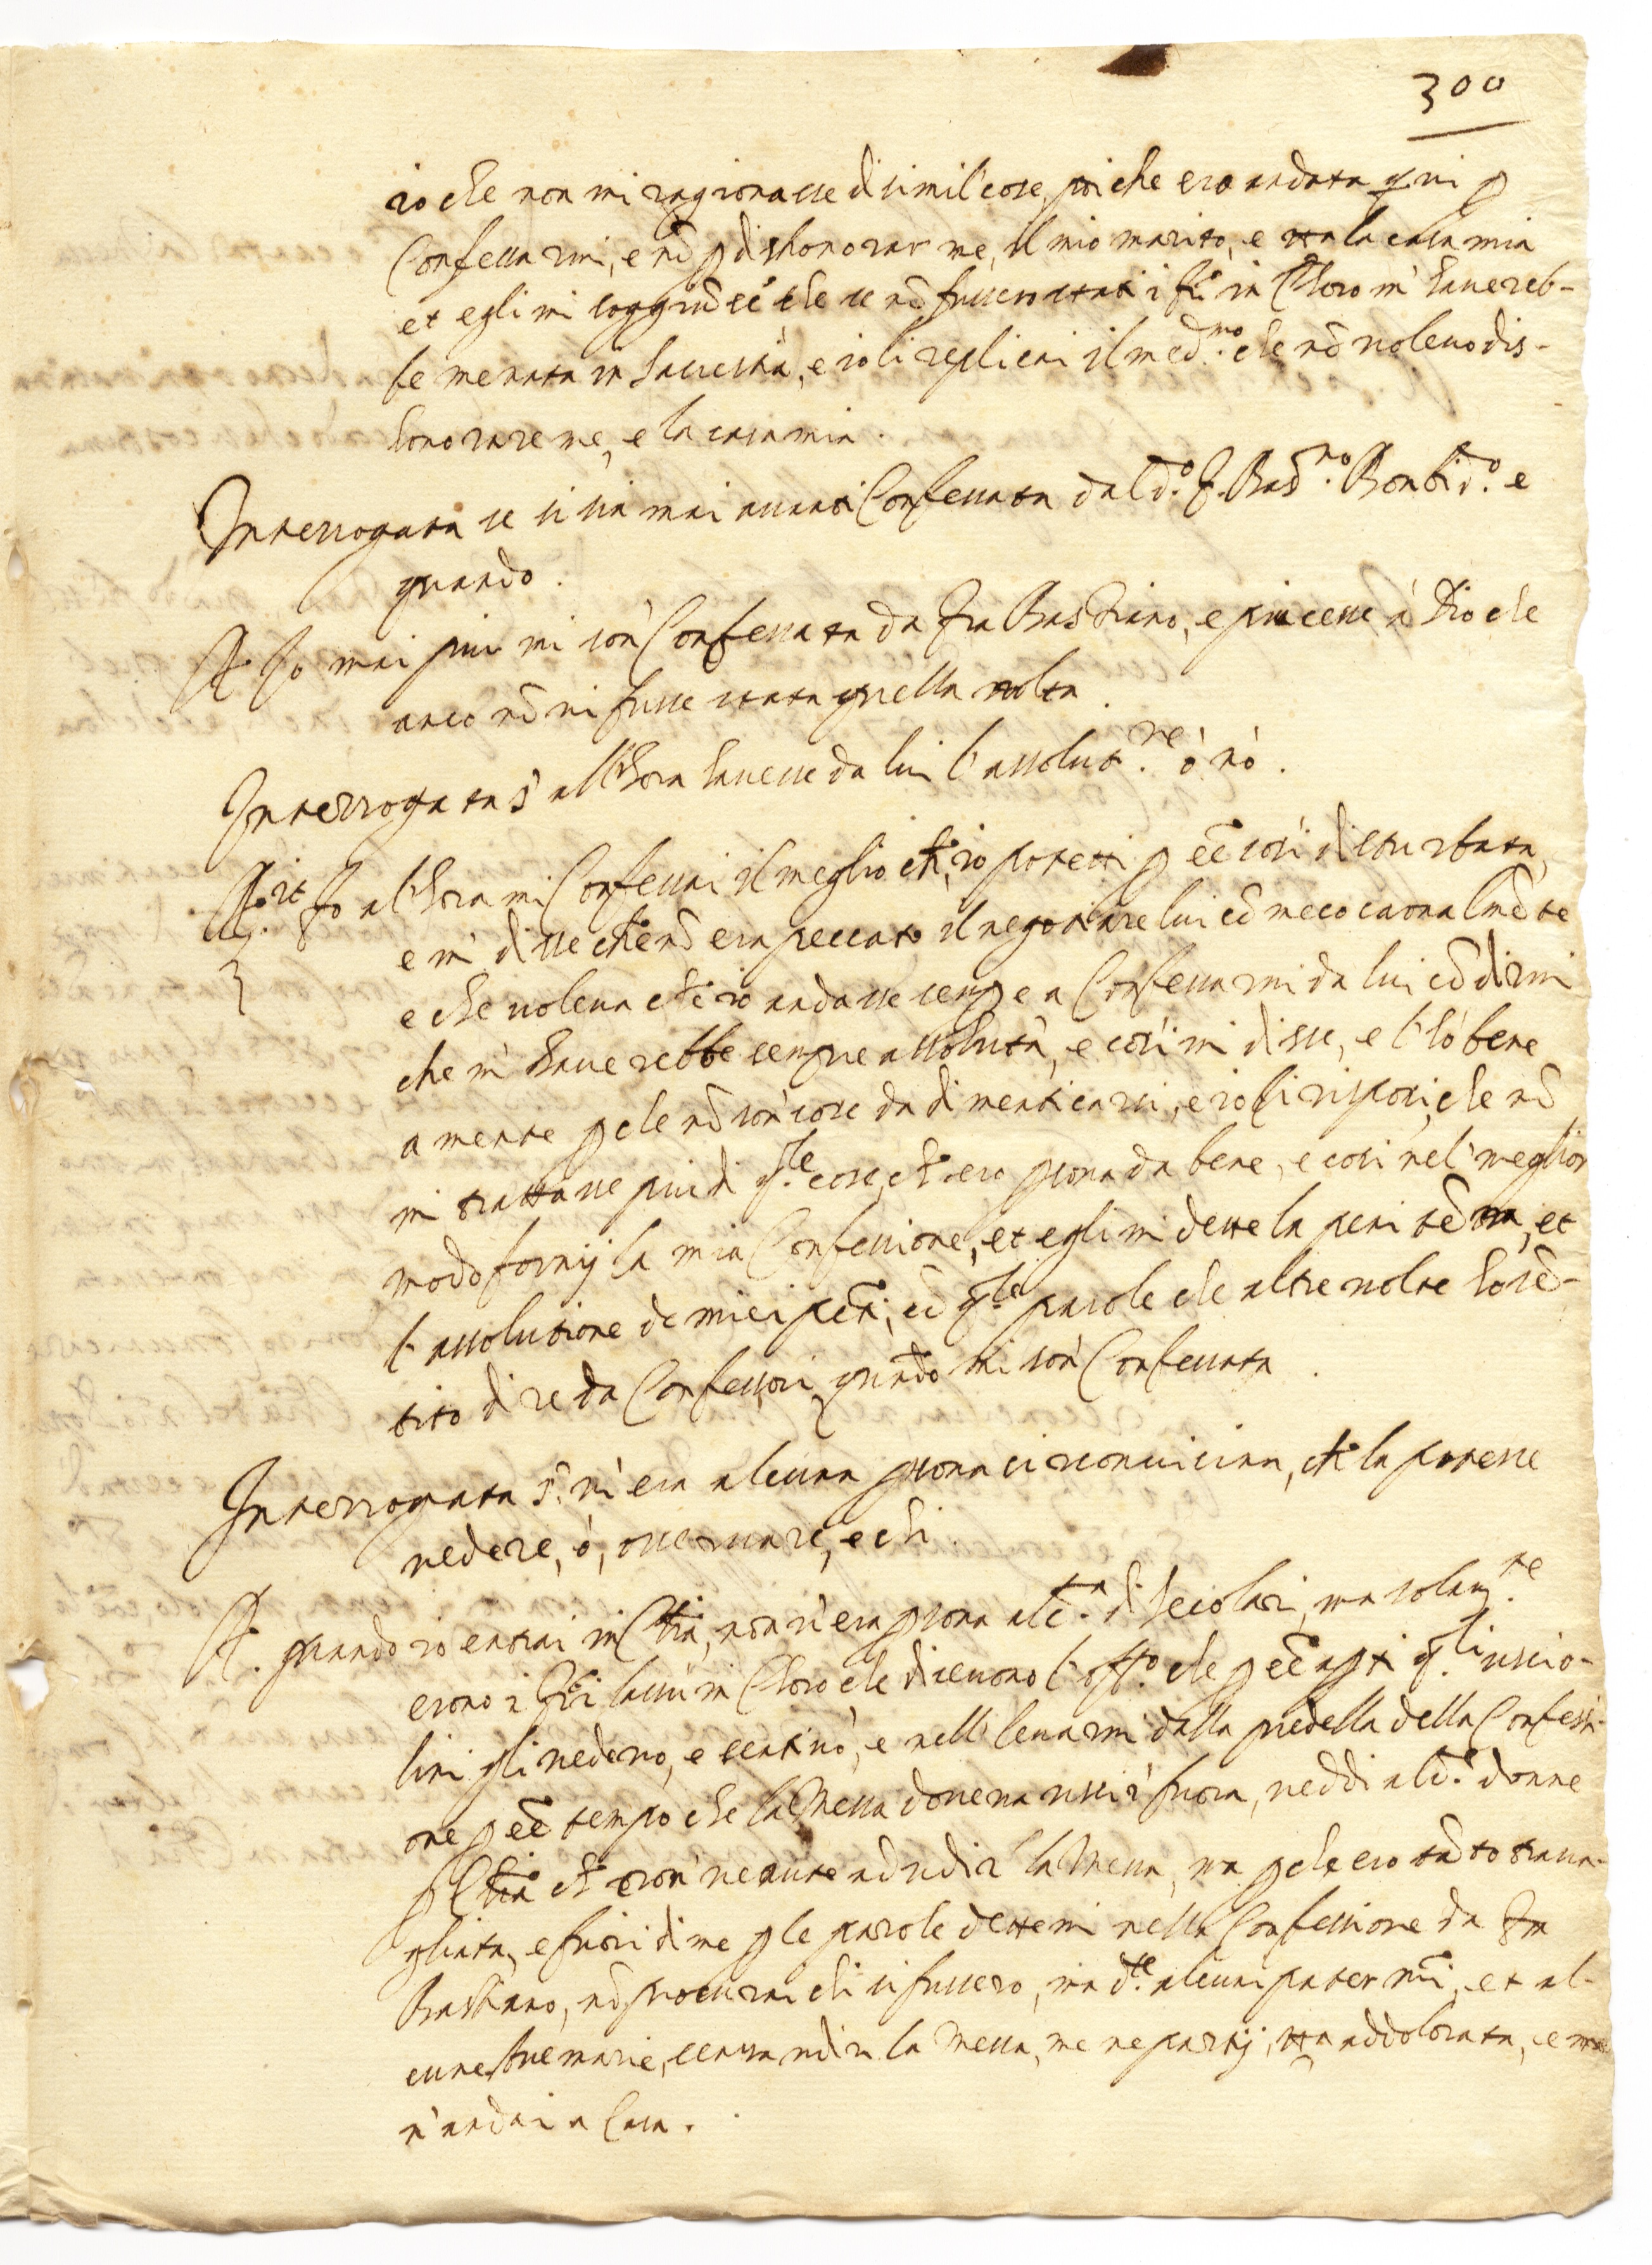 300
io che non mi ragionasse di simil cose, poi che ero andata qui p
Confessarmi, e nõ p dishonorar me, il mio marito, e tta la casa mia
et egli mi soggiũse che se nõ fussero stati i fri in Choro m' havereb-
be menata in sacrestia, e io li replicai il med.mo che nõ volevo dis-
honorare me, e la casa mia.
Interrogata se si sia mai avanti Confessata dal d.o f. Bast.no Bonfi d.o e
quando.
R. Io mai piu mi son' Confessata da fra Bastiano, e piacesse à Dio che
anco nõ vi fusse stata quella volta.
Interrogata s' all'hora havesse da lui l' assolut.ne ò nò.
R.it Io all'hora mi Confessai il meglio ch' io potetti p eẽ così disturbata,
e mi disse che nõ era peccato il negotiare lui cõ meco carnalmẽte
e che voleva ch' io andasse semp e a Confessarmi da lui cõ dirmi
che m' haverebbe sempre assoluta, e così mi disse, e l' hò bene
a mente p che nõ son' cose da dimenticarsi, e io li risposi, che nõ
mi trattasse piu di q.te cose, ch' ero psona da bene, e così nel' meglior
modo fornij la mia Confessione, et egli mi dette la penitẽtia, et
l' assolutione de miei pcti, cõ q.lle parole che altre volte ho sẽ-
tito dire da Confessori quãdo mi son' Confessata.
Interrogata s' vi era alcuna psona circonvicina, ch' la potesse
vedere, ò, osservare, e chi.
R. quando io entrai in Chia, non v' era psona alc.na di seciolari, ma solam.te
erono i fri lassù in Choro che dicevono l' off.o che p eẽ apti q.lli uscio-
lini gli vedevo, e sentivò, e nell' levarmi dalla predella della Confessi-
one p eẽ tempo che la Messa doveva uscir' fuora, veddi alc.e donne
p Chia ch' eron' venute ad udir' la Messa, ma p che ero tãto trava-
gliata, e fuori di me p le parole dettemi nella Confessione da fra
Bastiano, nõ procurai chi si fussero, ma d.te alcuni pater nri, et al-
cune Avemarie, senssa udir la Messa, me ne partij, tta addolorata, e me
n' andai a Casa.